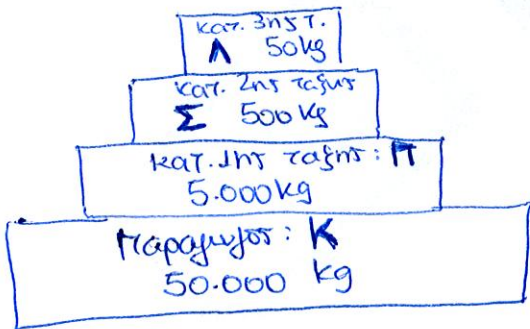 κατ. 3ης τ.
Λ 50kg
κατ. 2ης ταξης
Σ 500 kg
κατ. 1ης ταξης: Π
5.000 kg
Παραγωγος: Κ
50.000 kg